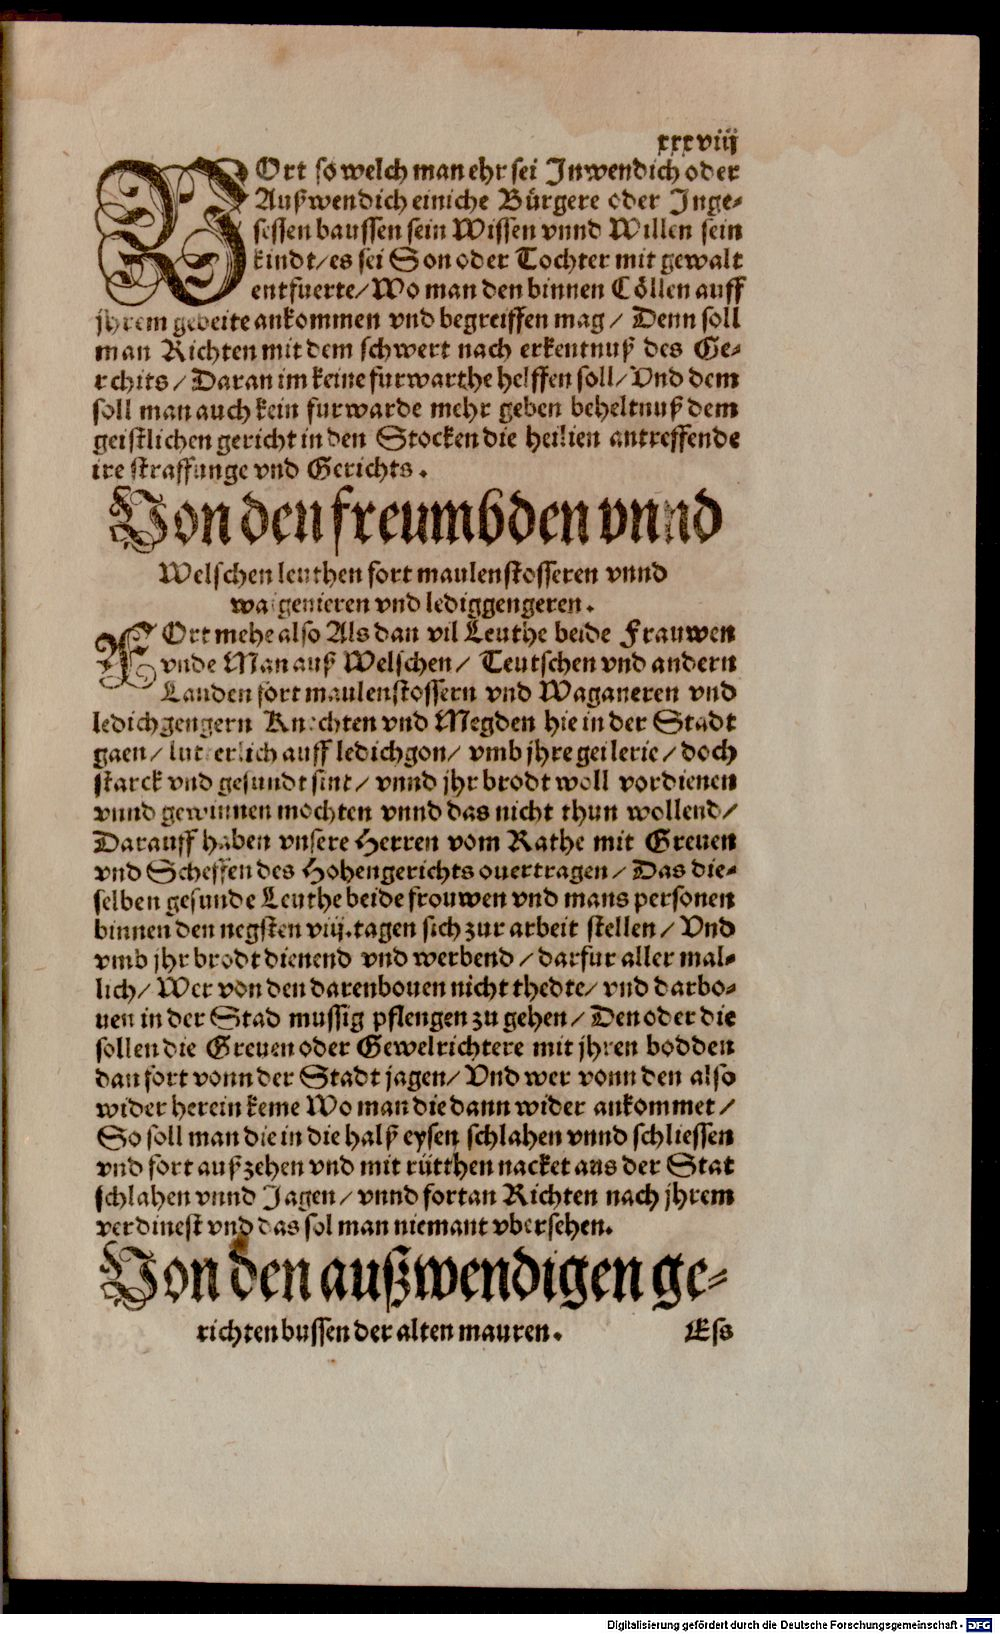 xxxviij
FOrt so welch man ehr sei Inwendich oder
Außwendich einiche Bürgere oder Inge-
sessen baussen sein Wissen vnnd Willen sein
kindt/ es sei Son oder Tochter mit gewalt
entfuerte/ Wo man den binnen Cöllen auff
jhrem gebeite ankommen vnd begreiffen mag/ Denn soll
man Richten mit dem schwert nach erkentnuß des Ge-
rchits/ Daran im keine furwarthe helffen soll/ Vnd dem
soll man auch kein furwarde mehr geben beheltnuß dem
geistlichen gericht in den Stocken die heilien antreffende
ire straffunge vnd Gerichts.
Von den freumbden vnnd
Welschen leuthen fort maulenstosseren vnnd
waigenieren vnd lediggengeren.
FOrt mehe also Als dan vil Leuthe beide Frauwen
vnde Man auß Welschen/ Teutschen vnd andern
Landen fort maulenstossern vnd Waganeren vnd
ledichgengern Knechten vnd Megden hie in der Stadt
gaen/ lutterlich auff ledichgon/ vmb jhre geilerie/ doch
starck vnd gesundt sint/ vnnd jhr brodt woll vordienen
vnnd gewinnen mochten vnnd das nicht thun wollend/
Darauff haben vnsere Herren vom Rathe mit Greuen
vnd Scheffen des Hohengerichts ouertragen/ Das die-
selben gesunde Leuthe beide frouwen vnd mans personen
binnen den negsten viij. tagen sich zur arbeit stellen/ Vnd
vmb jhr brodt dienend vnd werbend/ darfur aller mal-
lich/ Wer von den darenbouen nicht thedte/ vnd darbo-
uen in der Stad mussig pflengen zu gehen/ Den oder die
sollen die Greuen oder Gewelrichtere mit jhren bodden
dan fort vonn der Stadt jagen/ Vnd wer vonn den also
wider herein keme Wo man die dann wider ankommet/
So soll man die in die halß eysen schlahen vnnd schliessen
vnd fort auß zehen vnd mit rütthen nacket aus der Stat
schlahen vnnd Jagen/ vnnd fortan Richten nach jhrem
verdinest vnd das sol man niemant vbersehen.
Von den außwendigen ge-
richten bussen der alten mauren.
Ess
Digitalisierung gefördert durch die Deutsche Forschungsgemeinschaft - DFG